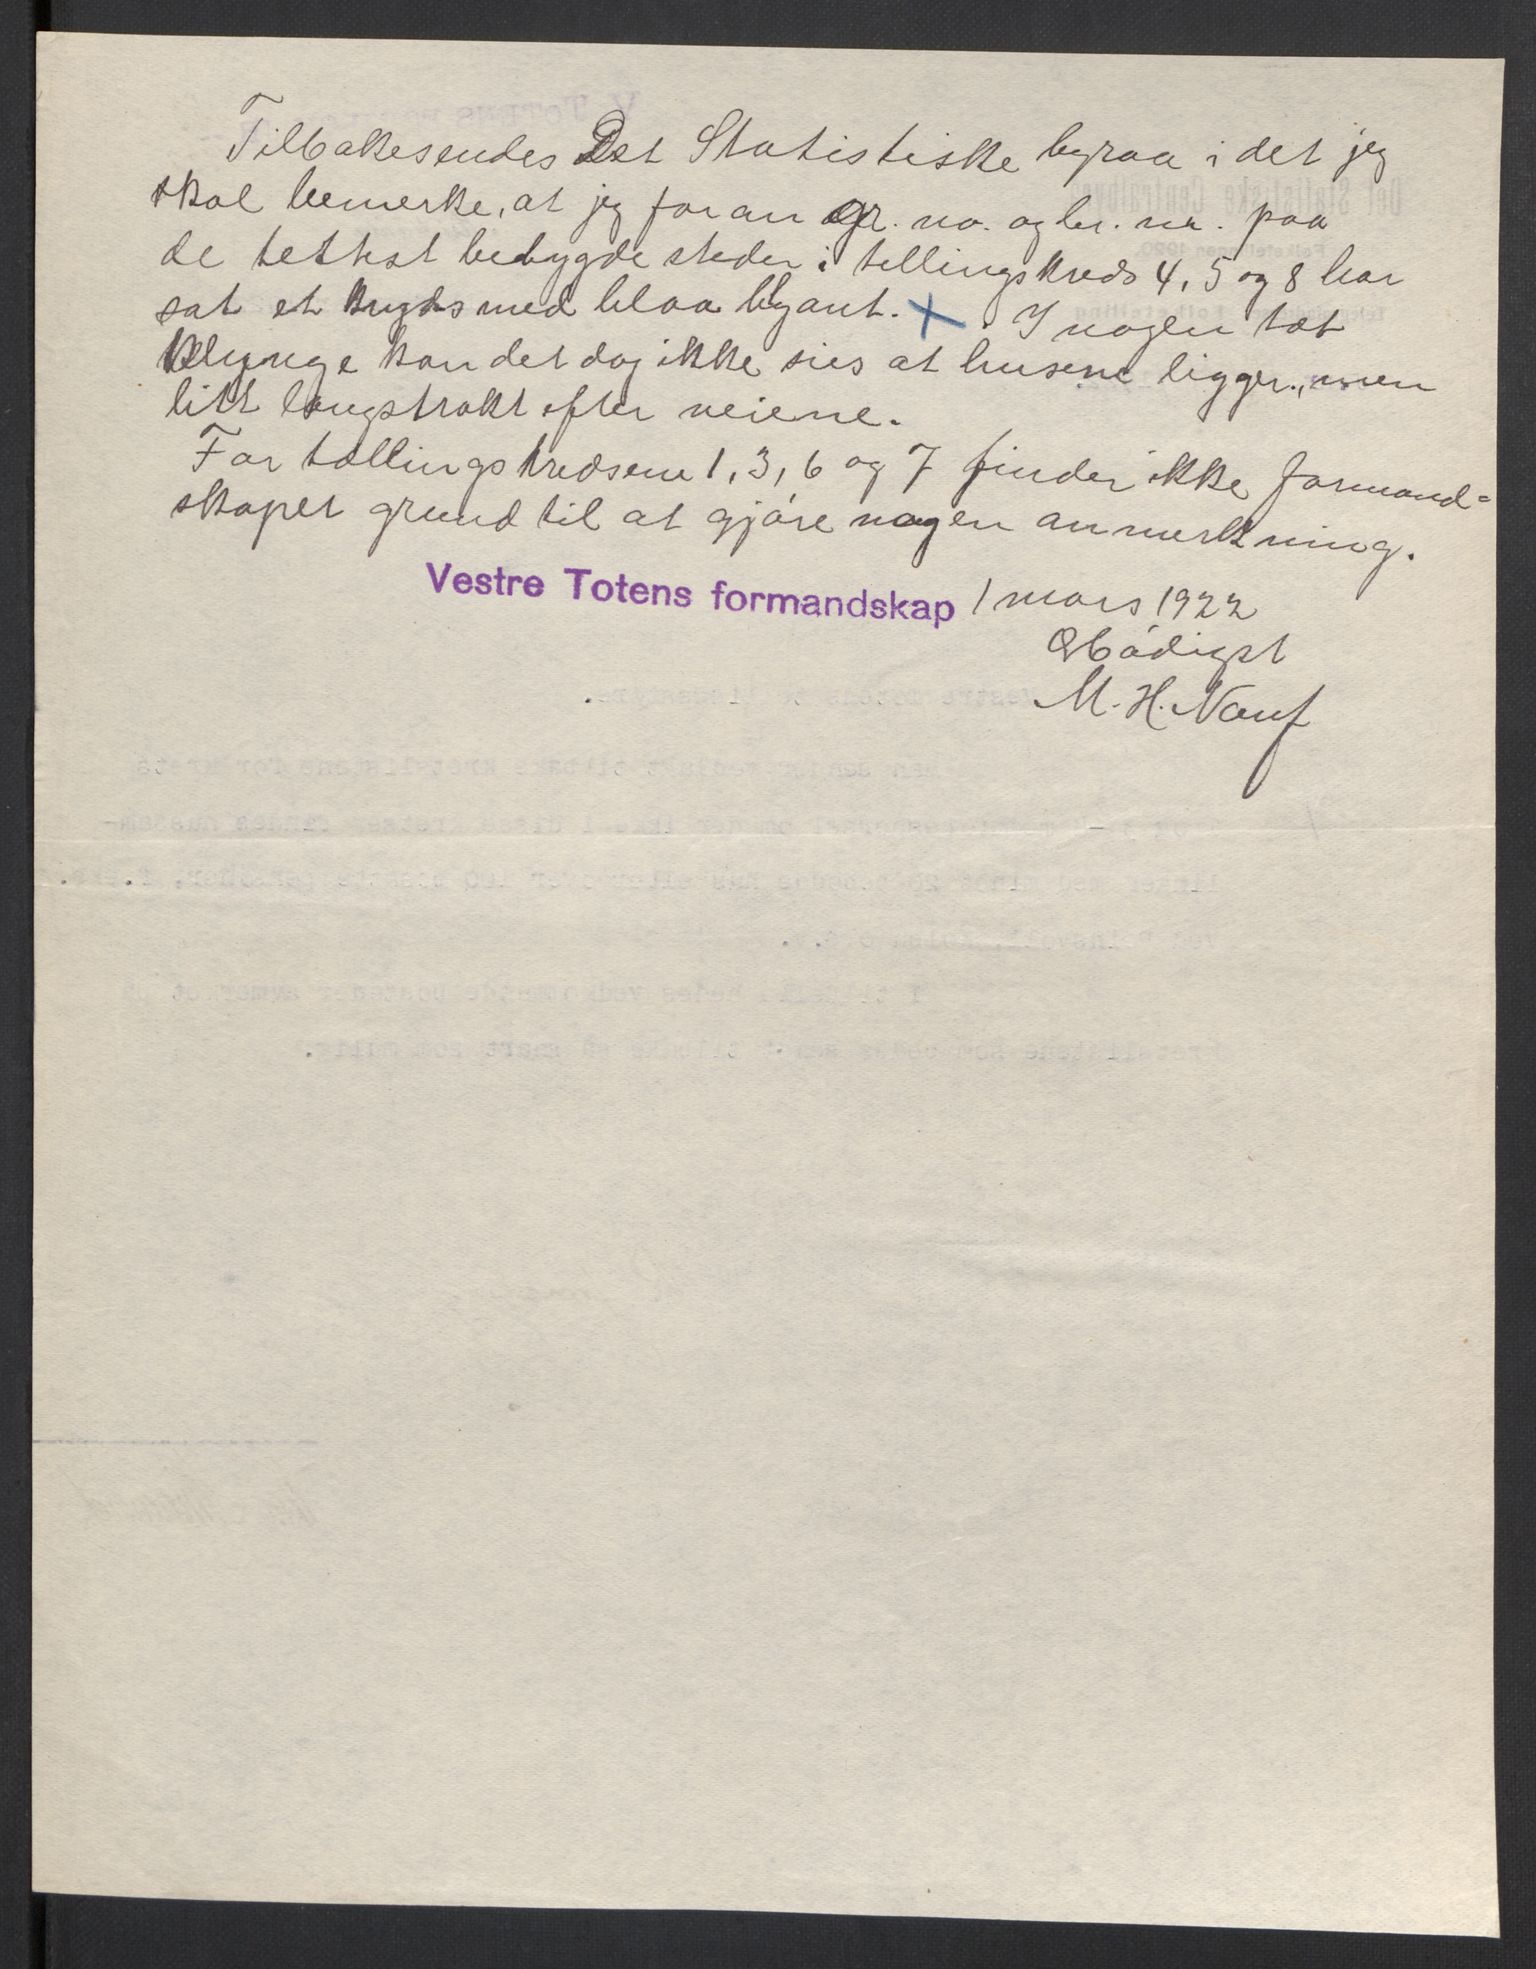 Tilbakesendes Det Statistiske byraa i det jeg
skal bemerke, at jeg foran gr. no. og br. no. paa
de tettest bebygde steder i tellingskreds 4, 5 og 8 har
sat et kryds med blaa blyant. X. I nogen tæt
klynge kan det dog ikke sies at husene ligger, men
litt langstrakt efter veiene.
For tællingskredsene 1, 3, 6 og 7 finder ikke formand-
skapet grund til at gjøre nogen anmerkning.
Vestre Totens formandskap 1 mars 1922
Ærbødigst
M. H.